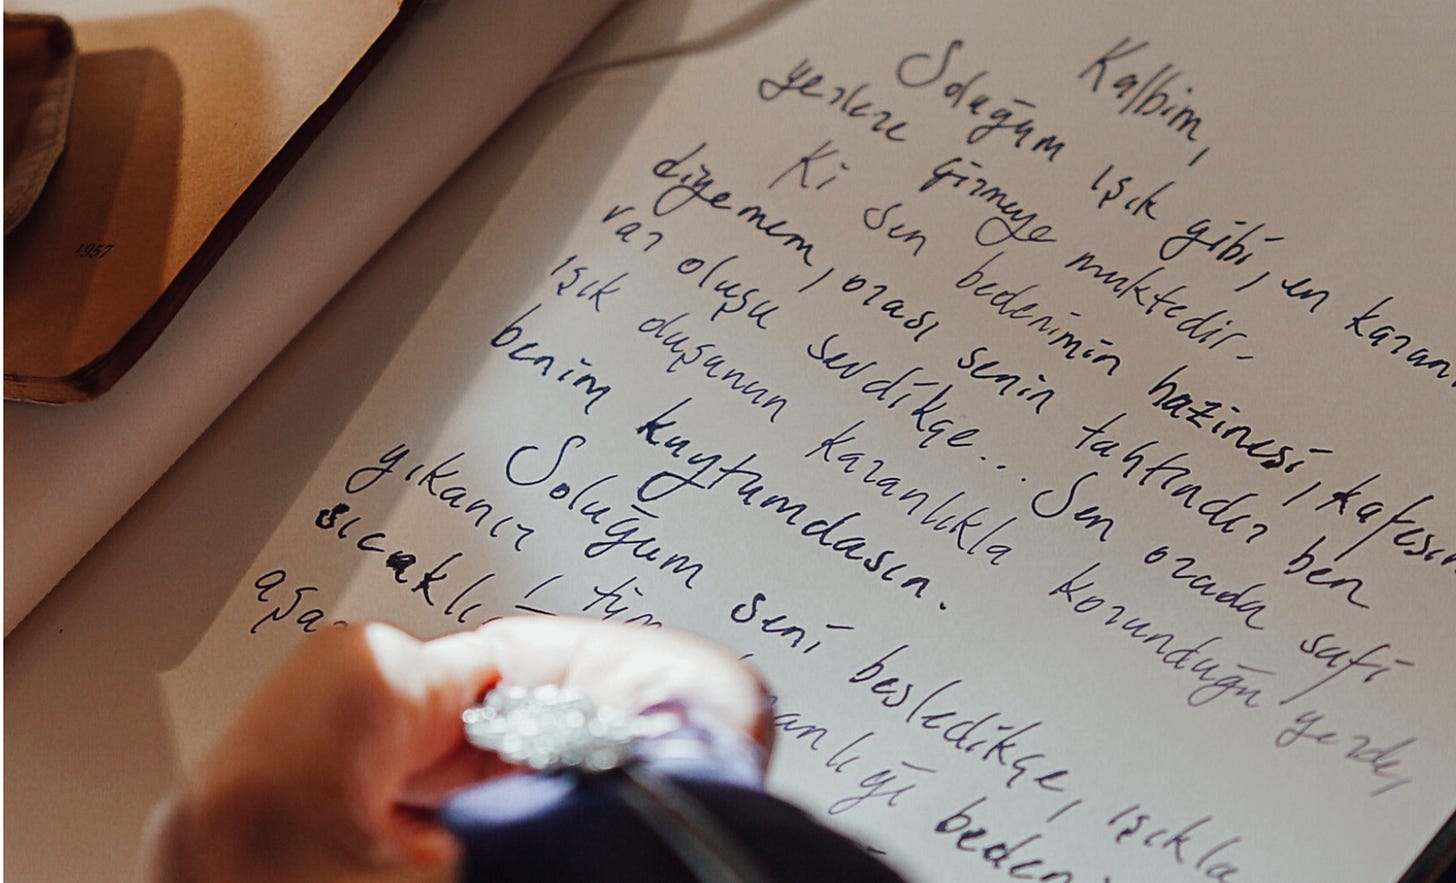 1957
Kalbim,
Soluğum ışık gibi, en karan
yerlere girmeye muktedir.
Ki sen bedenimin hazinesi, kafesin
diyemem, orası senin tahtındır ben
var oluşu sevdikçe... Sen orada safi
ışık duşunun karanlıkla korunduğu yerde,
benim kuytumdasın.
Soluğum seni besledikçe, ışıkla
yıkanır tüm anlığı beden
sıcaklı
aşa